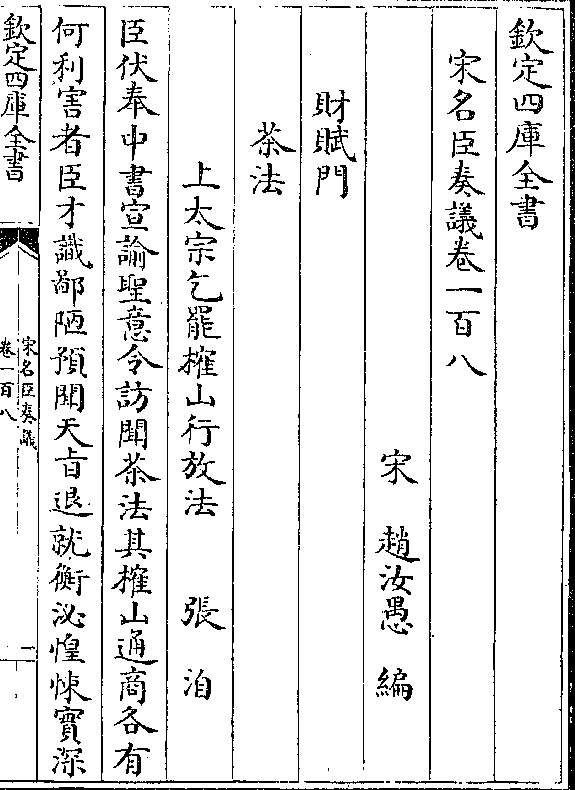 欽定四庫全書
宋名臣奏議卷一百八
宋　趙汝愚　編
財賦門
茶法
上太宗乞罷榷山行放法　　張洎
臣伏奉中書宣諭聖意令訪聞茶法其榷山通商各有
何利害者臣才識鄙陋預聞天旨退就衡泌惶悚實深
欽定四庫全書
宋名臣奏議
卷一百八
一